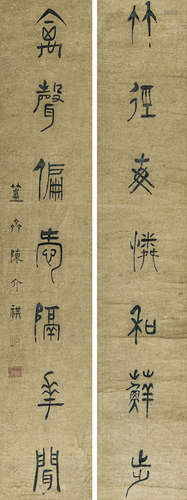 竹徑每憐和蘚步
禽聲偏愛隔華聞
簠齋陳介祺